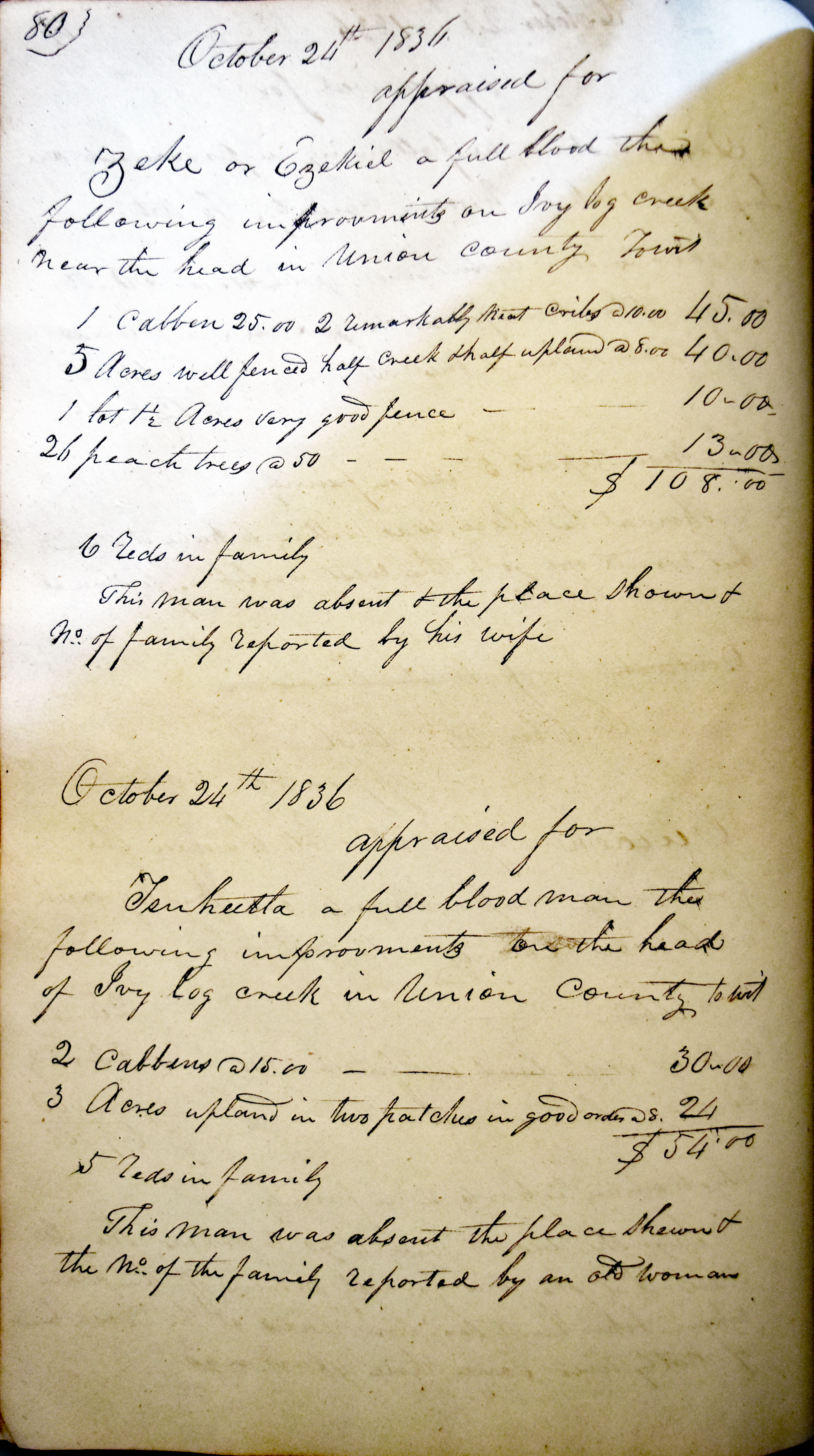 80}
October 24th 1836
appraised for
Zeke or Ezekiel a full blood the
following improvments on Ivy log creek
near the head in Union County Towit
1 Cabben 25.00 2 remarkably Neat Cribs @10.00 45.00
5 Acres well fenced half Creek & half upland @ 8.00 40.00
1 lot 1½ Acres very good fence - - 10-00
26 peach trees @ 50 - - - - 13-00
$ 108.00
6 Reds in family
This man was absent & the place shown &
No. of family reported by his wife
October 24th 1836
appraised for
a full blood man the
following improvments on the head
of Ivy Log creek in Union County towit
2 Cabbens @ 15.00 - - 30-00
3 Acres upland in two patches in good order @ 8. 24
$ 54.00
5 Reds in family
This man was absent the place shewn &
the No. of the family reported by an old woman